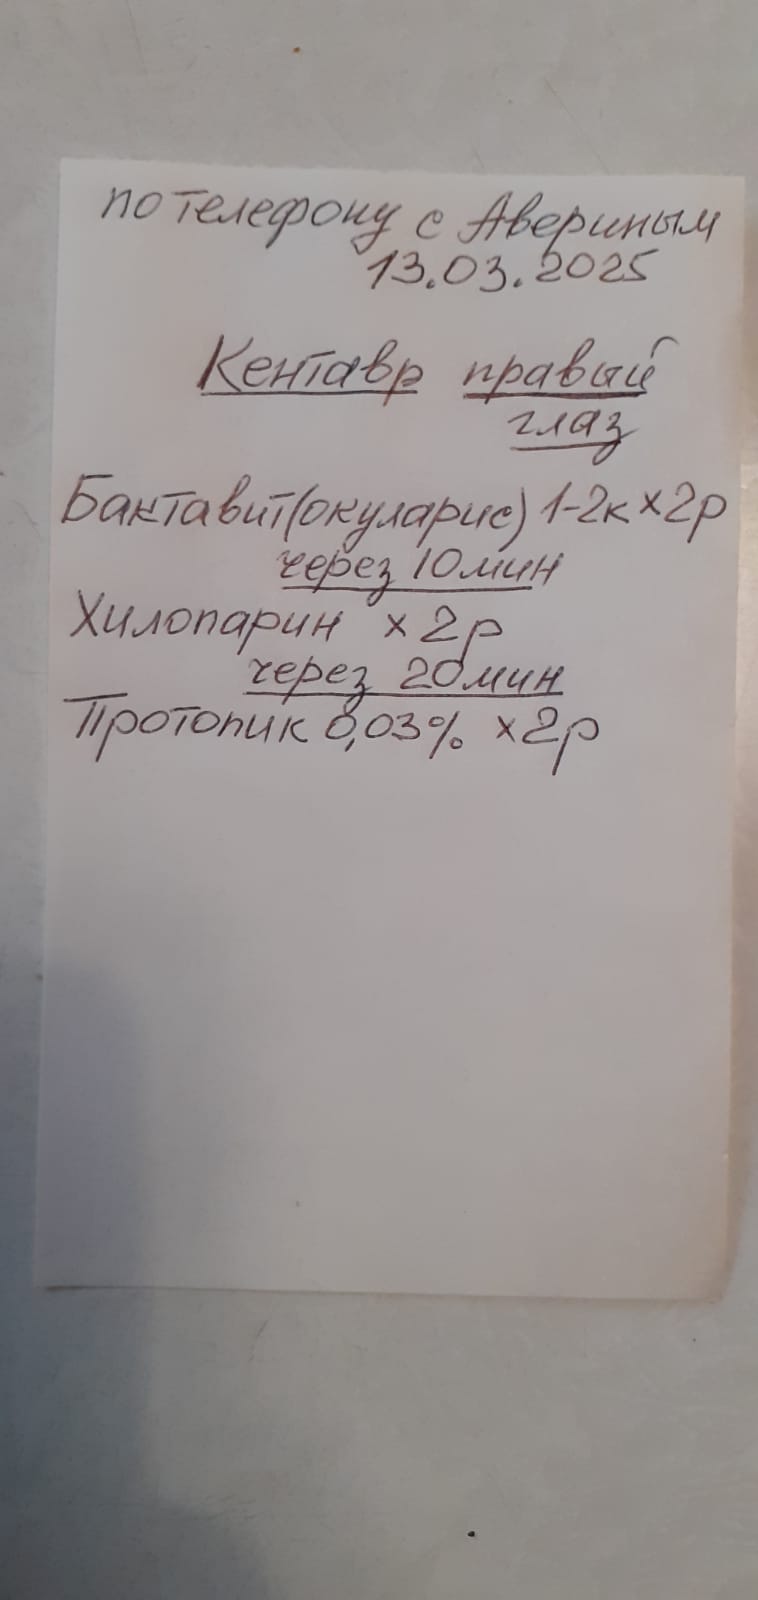 по телефону с Авериным
13.03.2025
Кентавр правый
глаз
Бактавит(окуларис) 1-2к x 2р
через 10мин
Хилопарин x 2р
через 20мин
Протопик 0,03% x 2р